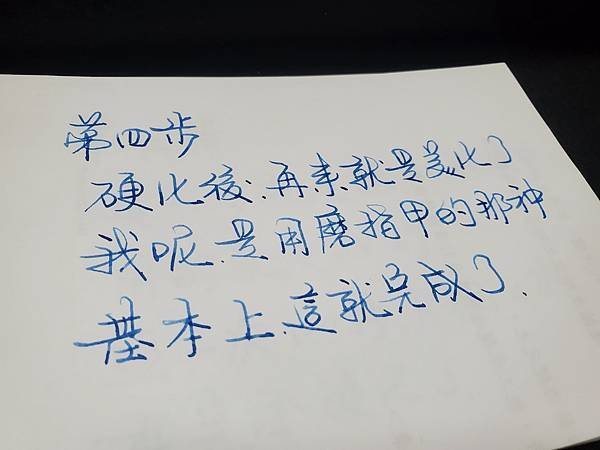 第四步
硬化後.再來就是美化了
我呢.是用磨指甲的那种
基本上.這就完成了.